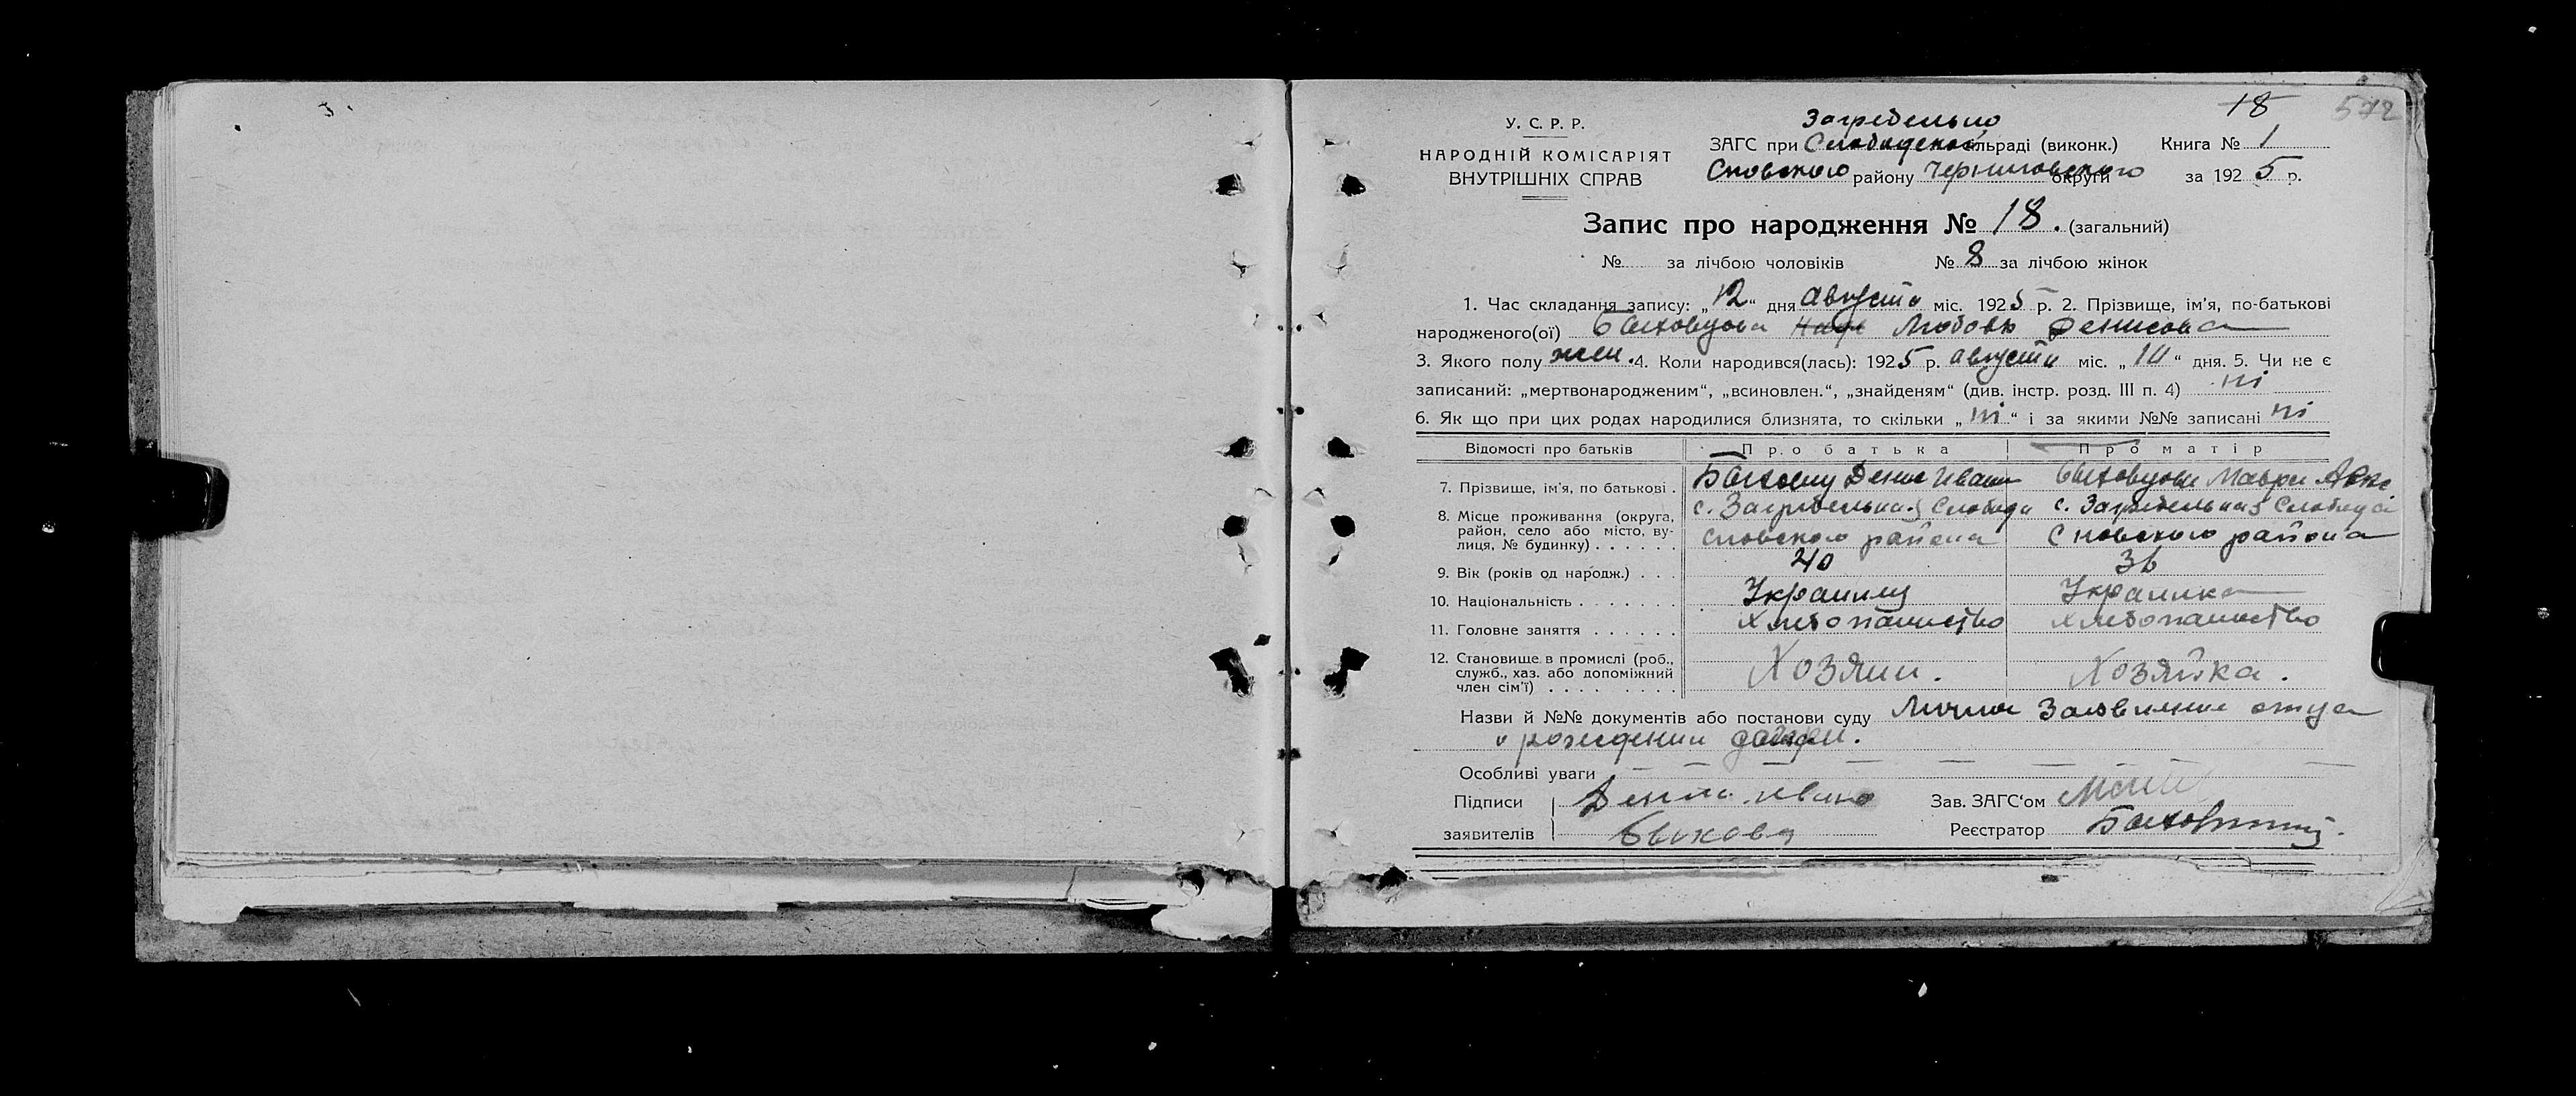 18
572
У. С. Р. Р.
НАРОДНІЙ КОМІСАРІЯТ
ВНУТРІШНІХ СПРАВ
Загребельно
ЗАГС при Слобидской сільраді (виконк.) Книга № 1
Сновского району Черниговского округи за 1925 р.
Запис про народження № 18. (загальний)
№ за лічбою чоловіків № 8 за лічбою жінок
1. Час складання запису: „12“ дня августа міс. 1925 р. 2. Прізвище, ім'я, по-батькові
народженого(ої) Быховцова Любовь Денисова
3. Якого полу жен. 4. Коли народився(лась): 1925 р. августа міс. „10“ дня. 5. Чи не є
записаний: „мертвонародженим“, „всиновлен.“, „знайденям“ (див. інстр. розд. III п. 4) ні
6. Як що при цих родах народилися близнята, то скільки „ні“ і за якими №№ записані ні
Відомості про батьків Про батька Про матір
7. Прізвище, ім'я, по батькові . Денис Иван Быховцова Мавра
8. Місце проживання (округа, район, село або місто, вулиця, № будинку) . . . . . . с. Загребельна Слобода с. Загребельная Слобода
Сновского района Сновского района
9. Вік (років од народж.) . . . 40 36
10. Національність . . . . . . . Украинец Украинка
11. Головне заняття . . . . . . Хлебопашество Хлебопашество
12. Становище в промислі (роб., служб., хаз. або допоміжний член сім'ї) . . . . . . . . . Хозяин. Хозяйка.
Назви й №№ документів або постанови суду Личное Заявление отца
о рождении дочери.
Особливі уваги
Підписи Денис Зав. ЗАГС'ом
заявителів Быховец Реєстратор